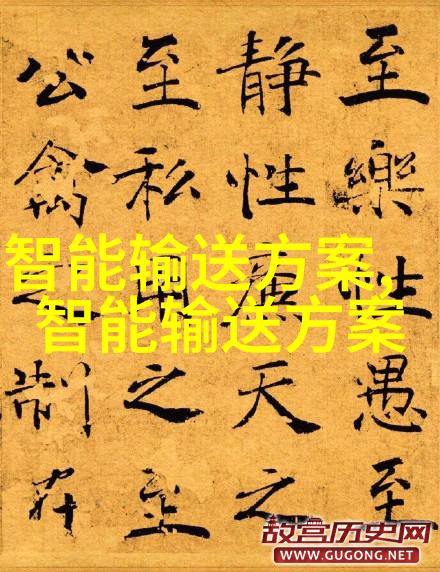 至樂性愚至
静性廉天之
至私用之至
公禽之制在
智能输送方案,
智能输送方案
故宫历史网
WWW.GUGONG.NET